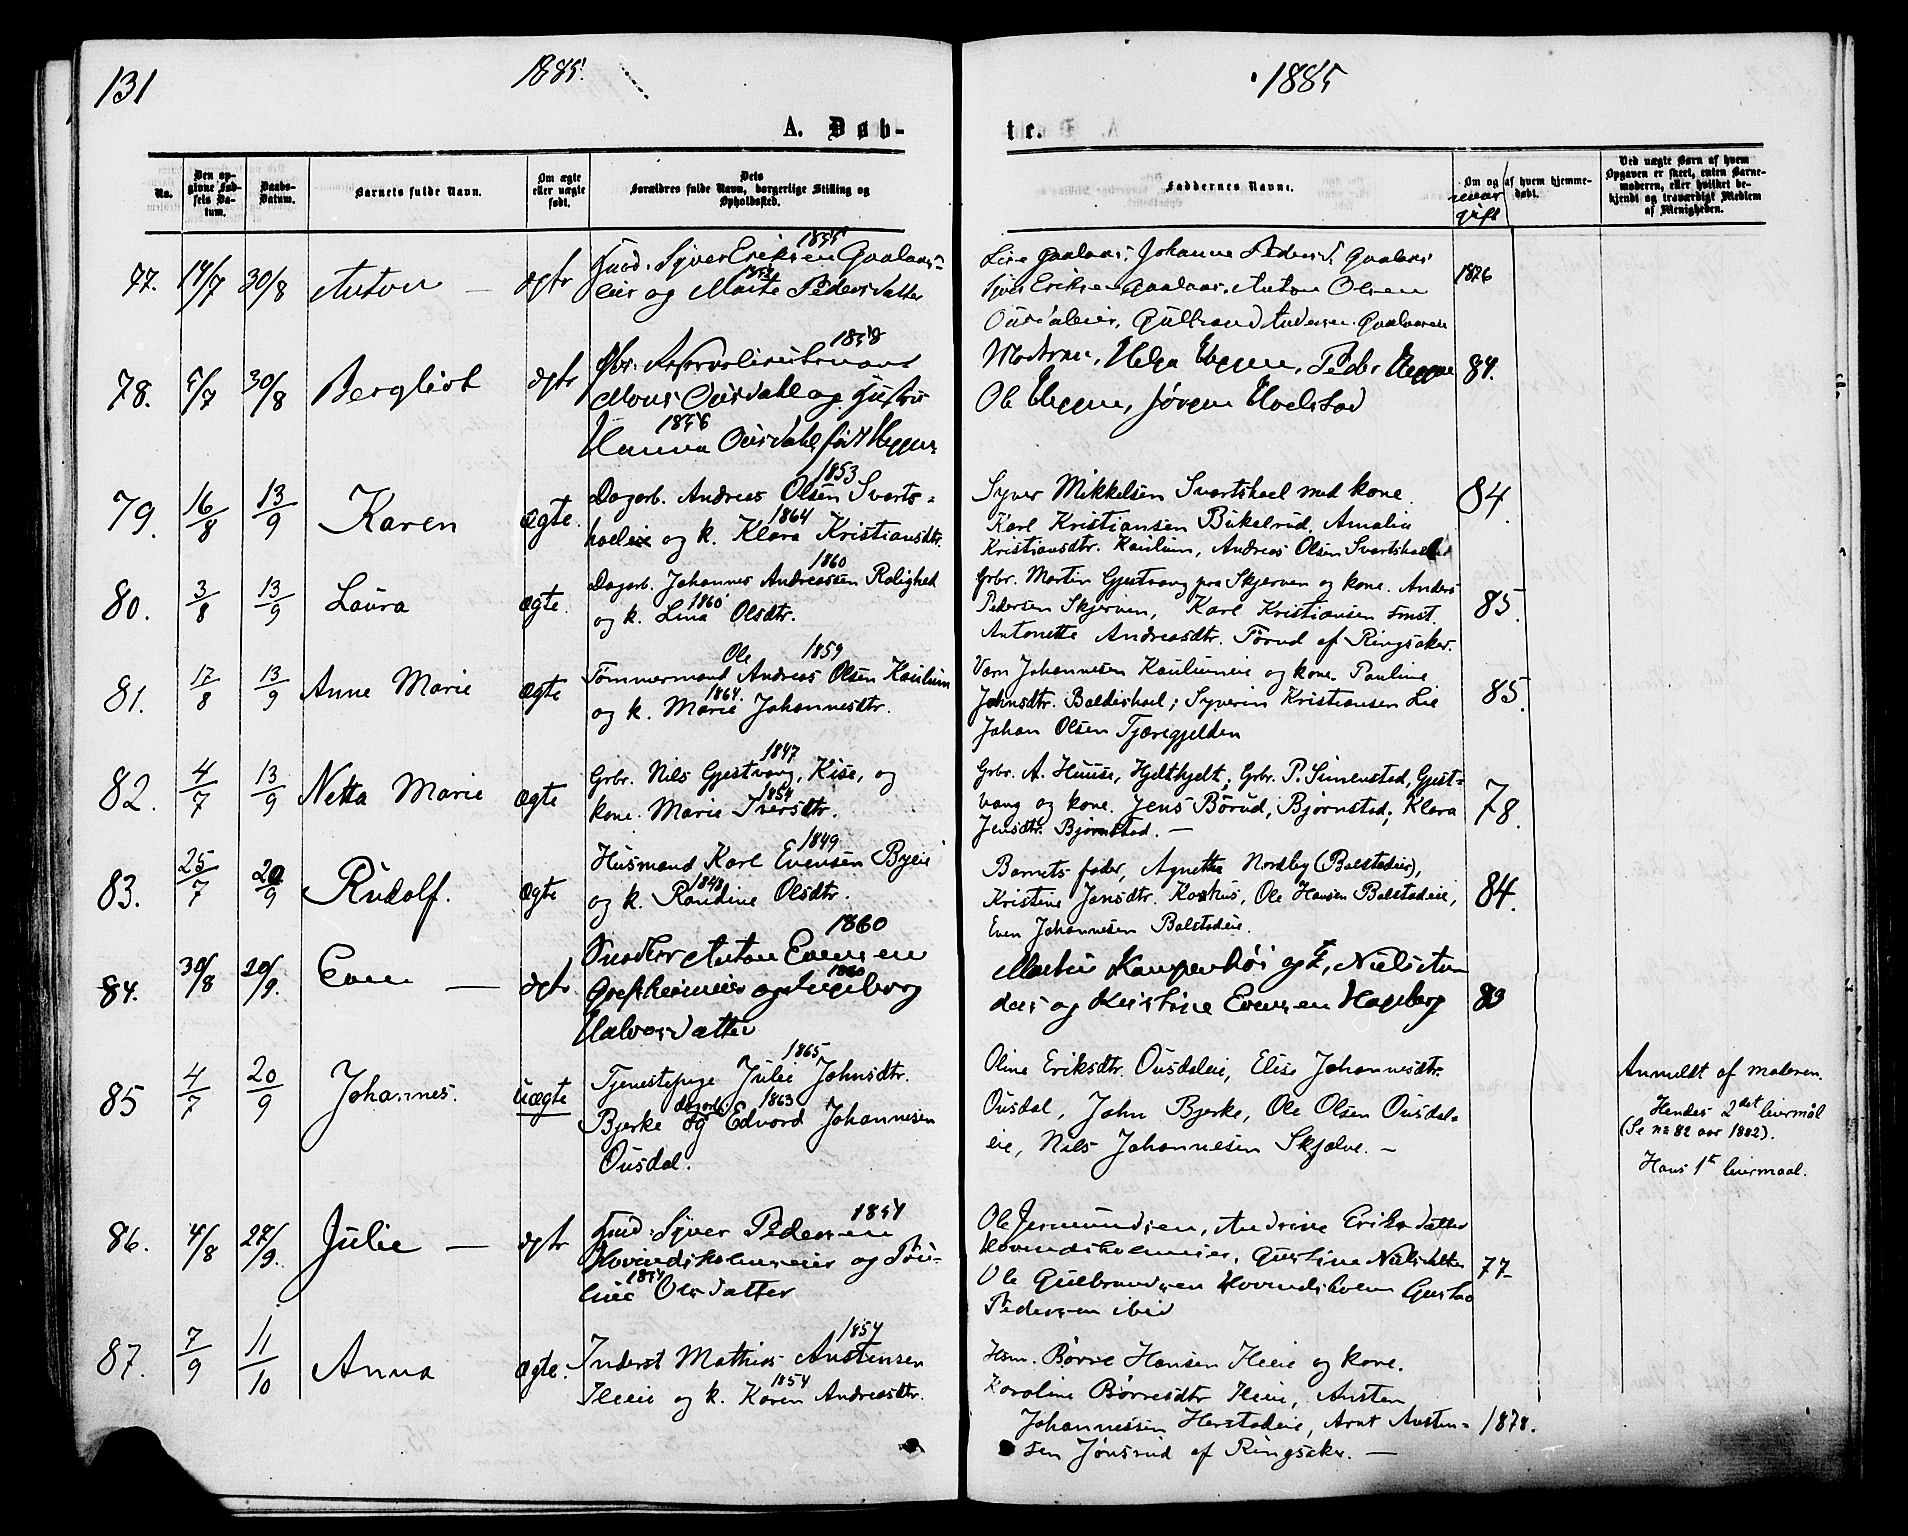 131
1885.
1885
A. Døb-
te.
No.
Den op-
givne Fød-
sels Da-
tum.
Daabs-
Datum.
Barnets fulde Navn.
Om ægte
eller uægte
født.
Dets
Forældres fulde Navn, borgerlige Stilling og
Opholdssted.
Faddernes Navne.
Om og af hvem hjemme-
døbt.
naar
gift
Ved uægte Børn af hvem
Opgaven er skeet, enten Barne-
moderen, eller hvilket be-
kjendt og troværdigt Medlem
af Menigheden.
77. 14/7 30/8 Anton — ægte
Syver Eriksen Gaalaas-
eie og Marte Pedersdatter
Lise Gaalaas, Johanne Pedersd. Gaalaas
Syver Eriksen Gaalaas, Anton Olsen
Ousdaleie, Gulbrand Andersen Gaalaaseie
1876
78. 5/7 30/8 Bergliot ægte
1858
Mons Ousdahl og Hustru
1856
Hanna Ousdahl født Heggen
Moderen, Helga Heggen, Peder Heggen
Ole Heggen, Jørgen Hoelstad
84.
79. 16/8 13/9 Karen ægte.
1853
Dagarb. Andreas Olsen Svarts-
1864
hoeleie og k. Klara Kristiansdtr.
Syver Mikkelsen Svartshoel med kone.
Karl Kristiansen Bikelrud, Amalia
Kristiansdtr. Kaulum, Andreas Olsen Svartshoel
84.
80. 3/8 13/9 Laura ægte.
1860
Dagarb. Johannes Andreassen Rolighed
1860
og k. Lina Olsdtr.
Grbr. Martin Gjestvang pra Skjerven og kone. Anders
Pedersen Skjerven, Karl Kristiansen Smst.
Antonette Andreasdtr. Torud af Ringsaker.
85.
81. 17/8 13/9 Anne Marie ægte
Ole 1859
Tømmermand Andreas Olsen Kaulum
1864.
og k. Marie Johannesdtr.
Johannesen Kaulumeie og kone. Pauline
Johnsdtr. Baldishoel; Syverin Kristiansen Lie
Johan Olsen Tjæregjelden
85.
82. 4/7 13/9 Netta Marie ægte
1847
Grbr. Nils Gjestvang, Kise, og
1854
kone. Marie Iversdtr.
Grbr. A. Huuse, Hjelthjelt; Grbr. P. Simenstad, Gjest-
vang og kone. Jens Børud, Bjørnstad; Klara
Jensdtr. Bjørnstad. —
78.
83. 25/7 20/9 Rudolf. ægte
1849
Husmand Karl Evensen Byeie
1848
og k. Randine Olsdtr.
Barnets fader, Agnethe Nordby (Balstadeie),
Kristine Jonsdtr. Korshus, Ole Hansen Balstadeie,
Even Johannesen Balstadeie.
84.
84. 30/8 20/9. Even — ægte
1860
Snedker Anton Evensen
1860
Grefsheimeie og Ingeborg
Halvorsdatter
Martin Kampenhøi og f, Niels
og Kristine Evensen Hageberg
83
85 4/7 20/9 Johannes. uægte
1865
Tjenestepige Julie Johnsdtr.
dagarb. 1863
Bjerke og Edvard Johannesen
Ousdal.
Oline Eriksdtr. Ousdaleie, Elise Johannesdtr.
Ousdal, John Bjerke, Ole Olsen Ousdal-
eie, Nils Johannesen Skjelve. —
Anmeldt af moderen.
Hendes 2det leiermål
(Se no 82 aar 1882).
Hans 1te leiermaal.
86. 4/8 27/9. Julie — ægte
Syver Pedersen
Hovindsholmeie og
Olsdatter
Ole Jermundsen, Andrine Eriksdatter
Hovindsholmeie, Gustine Nielsdatter
Ole Gulbrandsen Hovindsholm Gustav
Pedersen ibid
77-
87. 7/9 11/10 Anna ægte.
1854
Inderst Mathias Austensen
1854
Ileie og k. Karen Andreasdtr.
Hsm. Børre Hansen Ileie og kone.
Karoline Børresdtr Ileie, Austen
Johannessen Herstadeie, Arnt Austen-
sen Jønsrud af Ringsaker. —
1878.